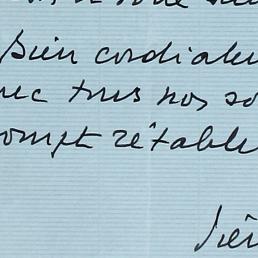 Bien cordiale
vec tous nos so
ompt rétable